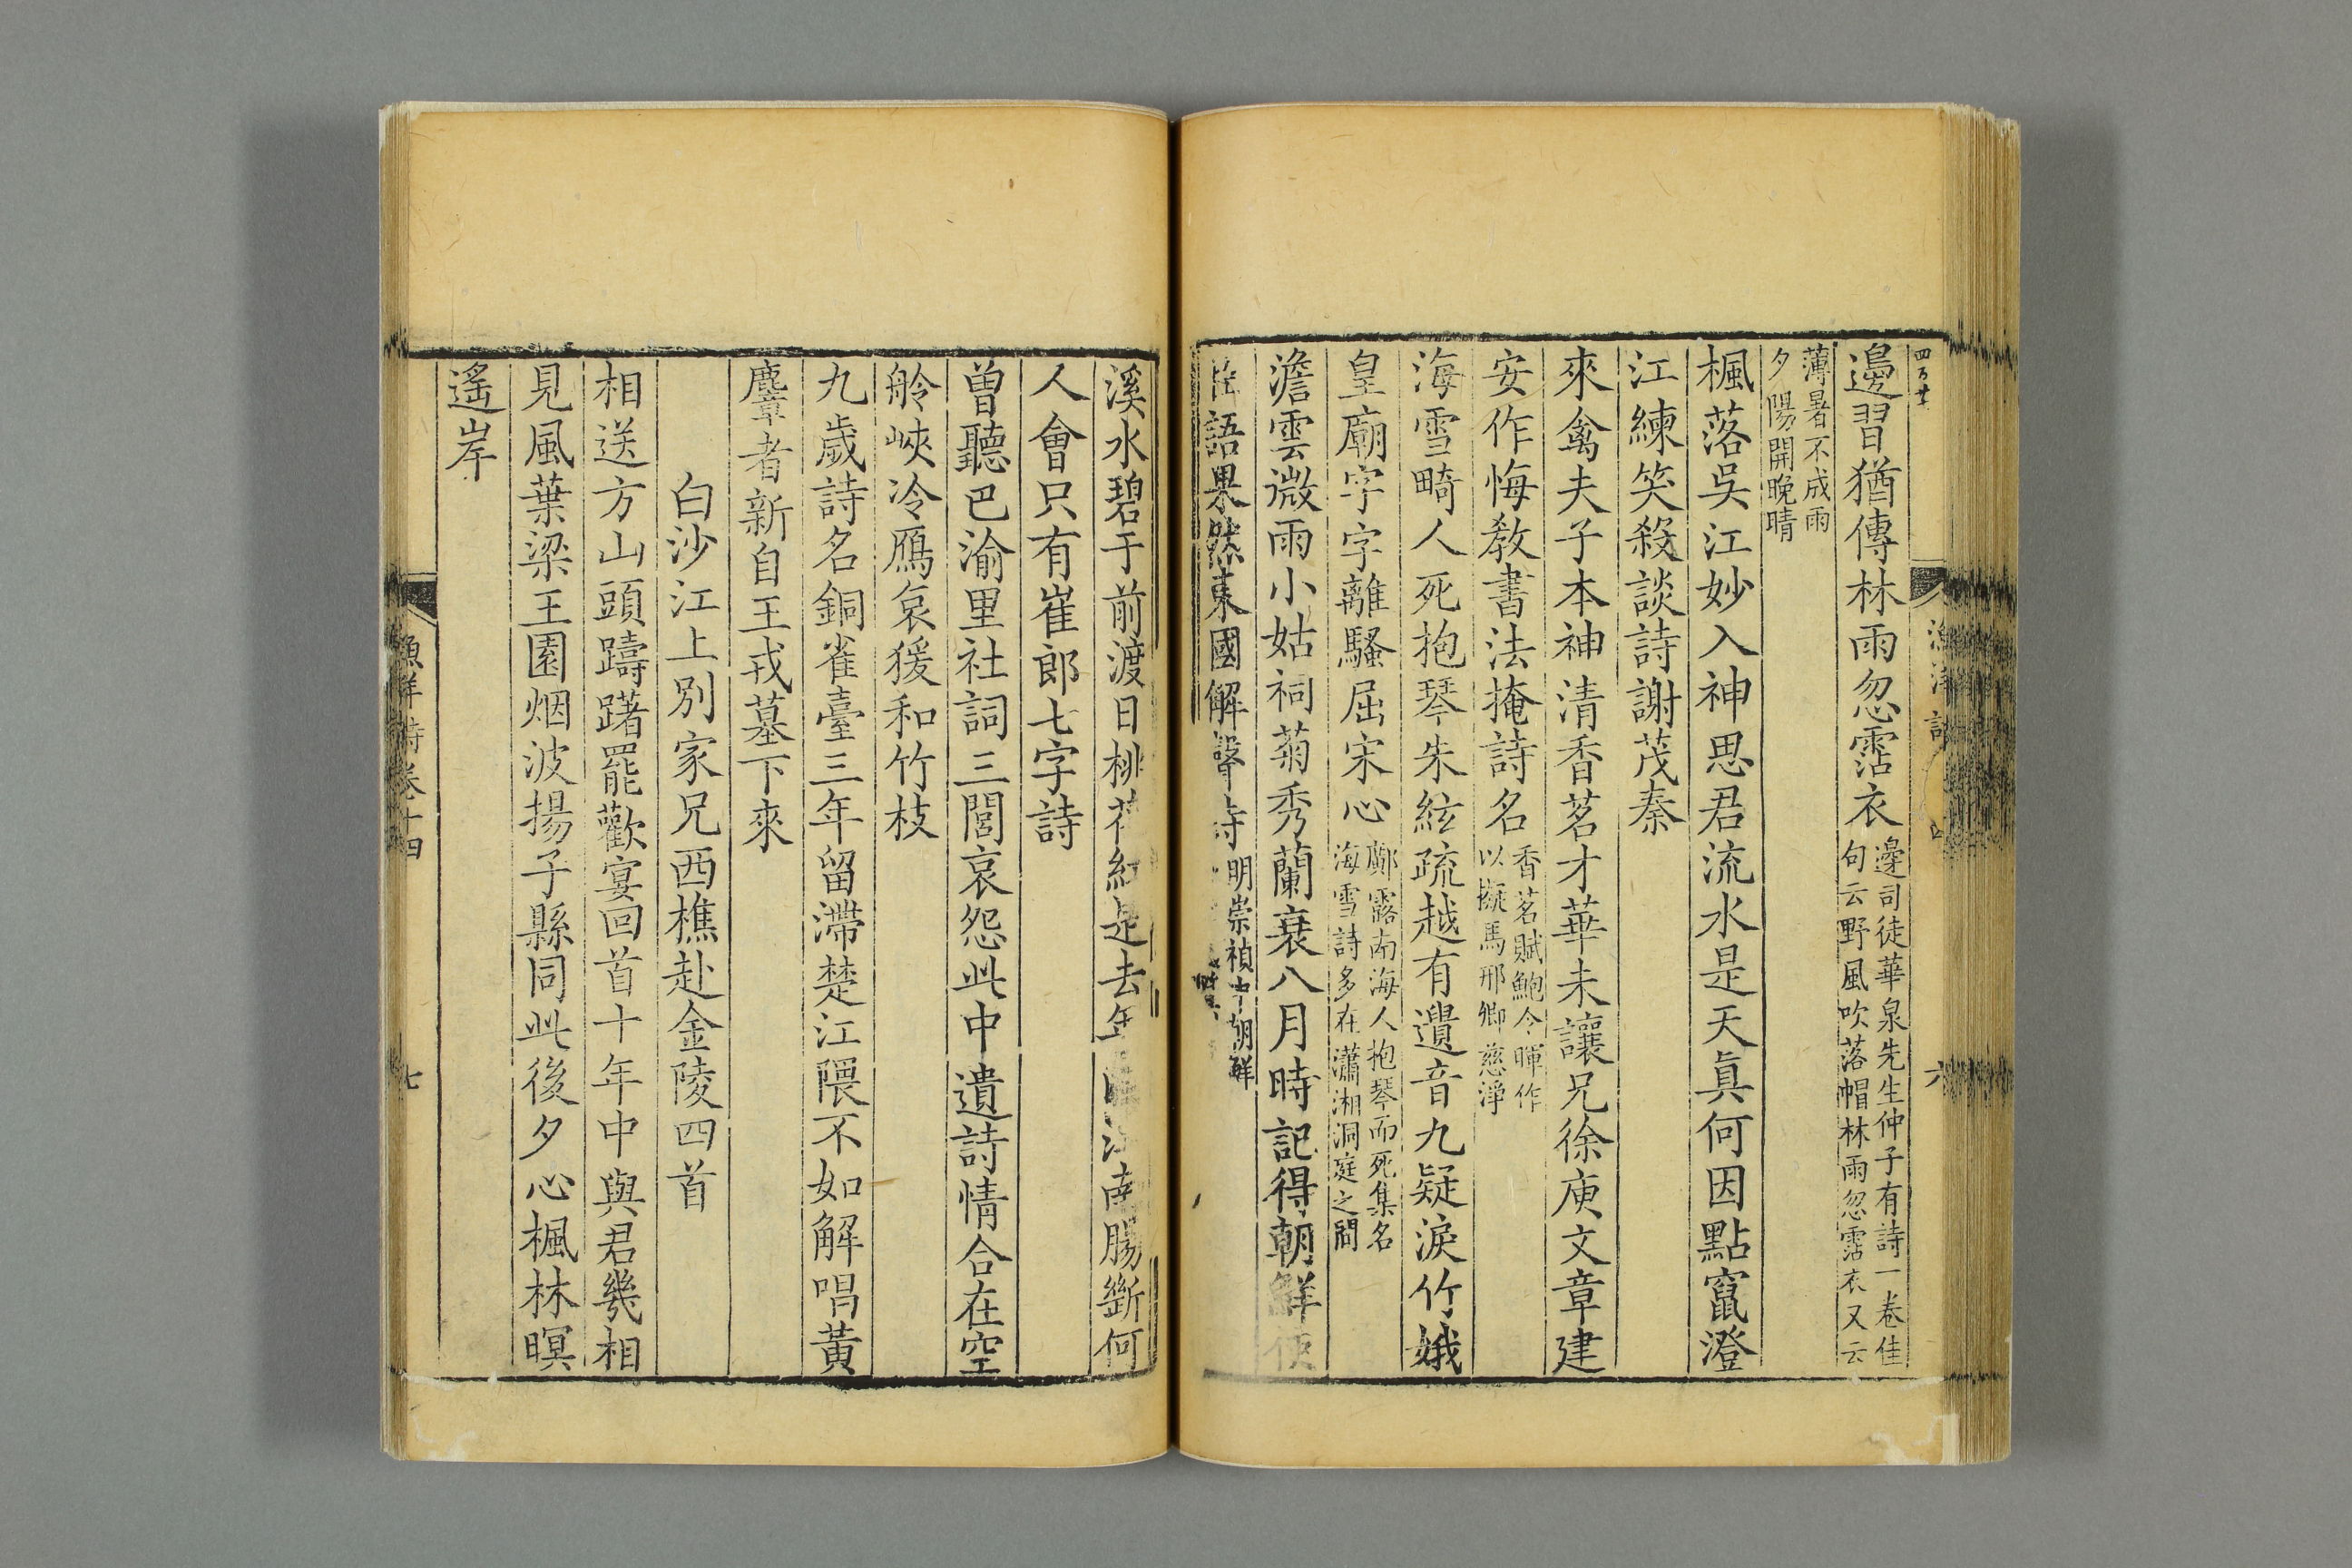 邊習猶傳林雨忽霑衣邊司徒華泉先生仲子有詩一卷佳句云野風吹落帽林雨忽霑衣又云
薄暑不成雨夕陽開晚晴
楓落吳江妙入神思君流水是天真何因點竄澄
江練笑殺談詩謝茂秦
來禽夫子本神清香茗才華未讓兄徐庾文章建
安作悔教書法掩詩名香茗賦鮑令暉作以擬馬邢卿慈淨
海雪畸人死抱琴朱絃疏越有遺音九疑淚竹娥
皇廟字字離騷屈宋心鄺露南海人抱琴而死集名海雪詩多在瀟湘洞庭之間
澹雲微雨小姑祠菊秀蘭衰八月時記得朝鮮使
臣語果然東國解聲詩明崇禎中朝鮮
溪水碧于前渡日桃花紅是去年江南腸斷何
人會只有崔郎七字詩
曾聽巴渝里社詞三閭哀怨此中遺詩情合在空
舲峽冷鴈哀猨和竹枝
九歲詩名銅雀臺三年留滯楚江隈不如解唱黃
麞者新自王戎墓下來
白沙江上別家兄西樵赴金陵四首
相送方山頭躊躇罷歡宴回首十年中與君幾相
見風葉梁王園烟波揚子縣同此後夕心楓林暝
遙岸
漁洋詩卷十四
七
六